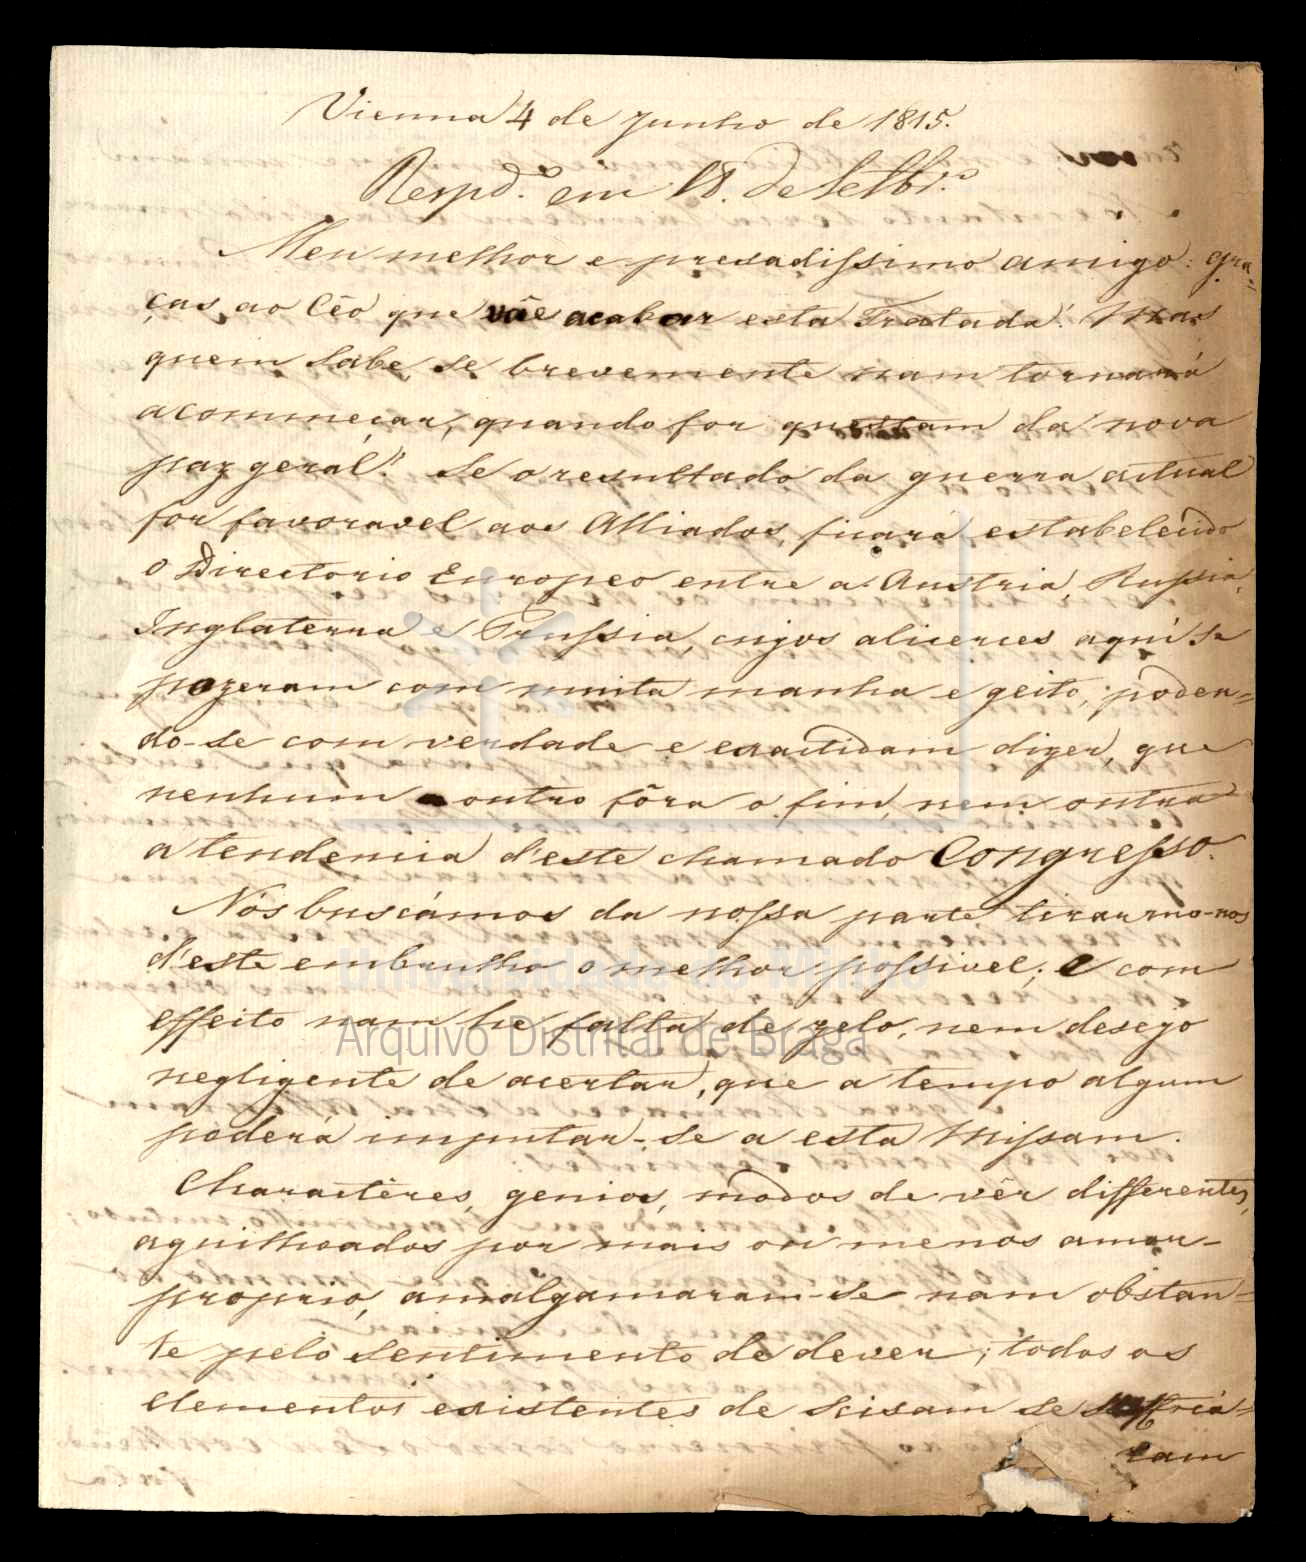 Vienna 4 de Junho de 1815.
Respd.º em 18. de Setbr.º
Meu melhor e presadissimo amigo: gra-
ças ao Céo que vâe acabar esta Tratada! Mas
quem sabe, se brevemente nam tornará
a commeçar, quando for questam da nova
paz geral! Se o resultado da guerra actual
for favoravel aos Alliados, ficará estabelecido
o Directorio Europeo entre a Austria, Russia,
Inglaterra e Prussia, cujos alicerces aquí se
pozeram com muita manha e geito; poden-
do-se com verdade e exactidam dizer, que
nenhum outro fôra o fim, nem outra
a tendencia d'este chamado Congresso.
Nós buscámos da nossa parte tirarmo-nos
d'este embrulho o melhor possivel; e com
effeito nam he falta de zelo, nem desejo
negligente de acertar, que a tempo algum
poderá imputar-se a esta Missam.
Charactéres, genios, modos de vêr differentes,
aguilhoados por mais ou menos amor-
proprio, amalgamaram-se nam obstan-
te pelo sentimento de dever; todos os
elementos existentes de scisam se
ram
Universidade do Minho
Arquivo Distrital de Braga